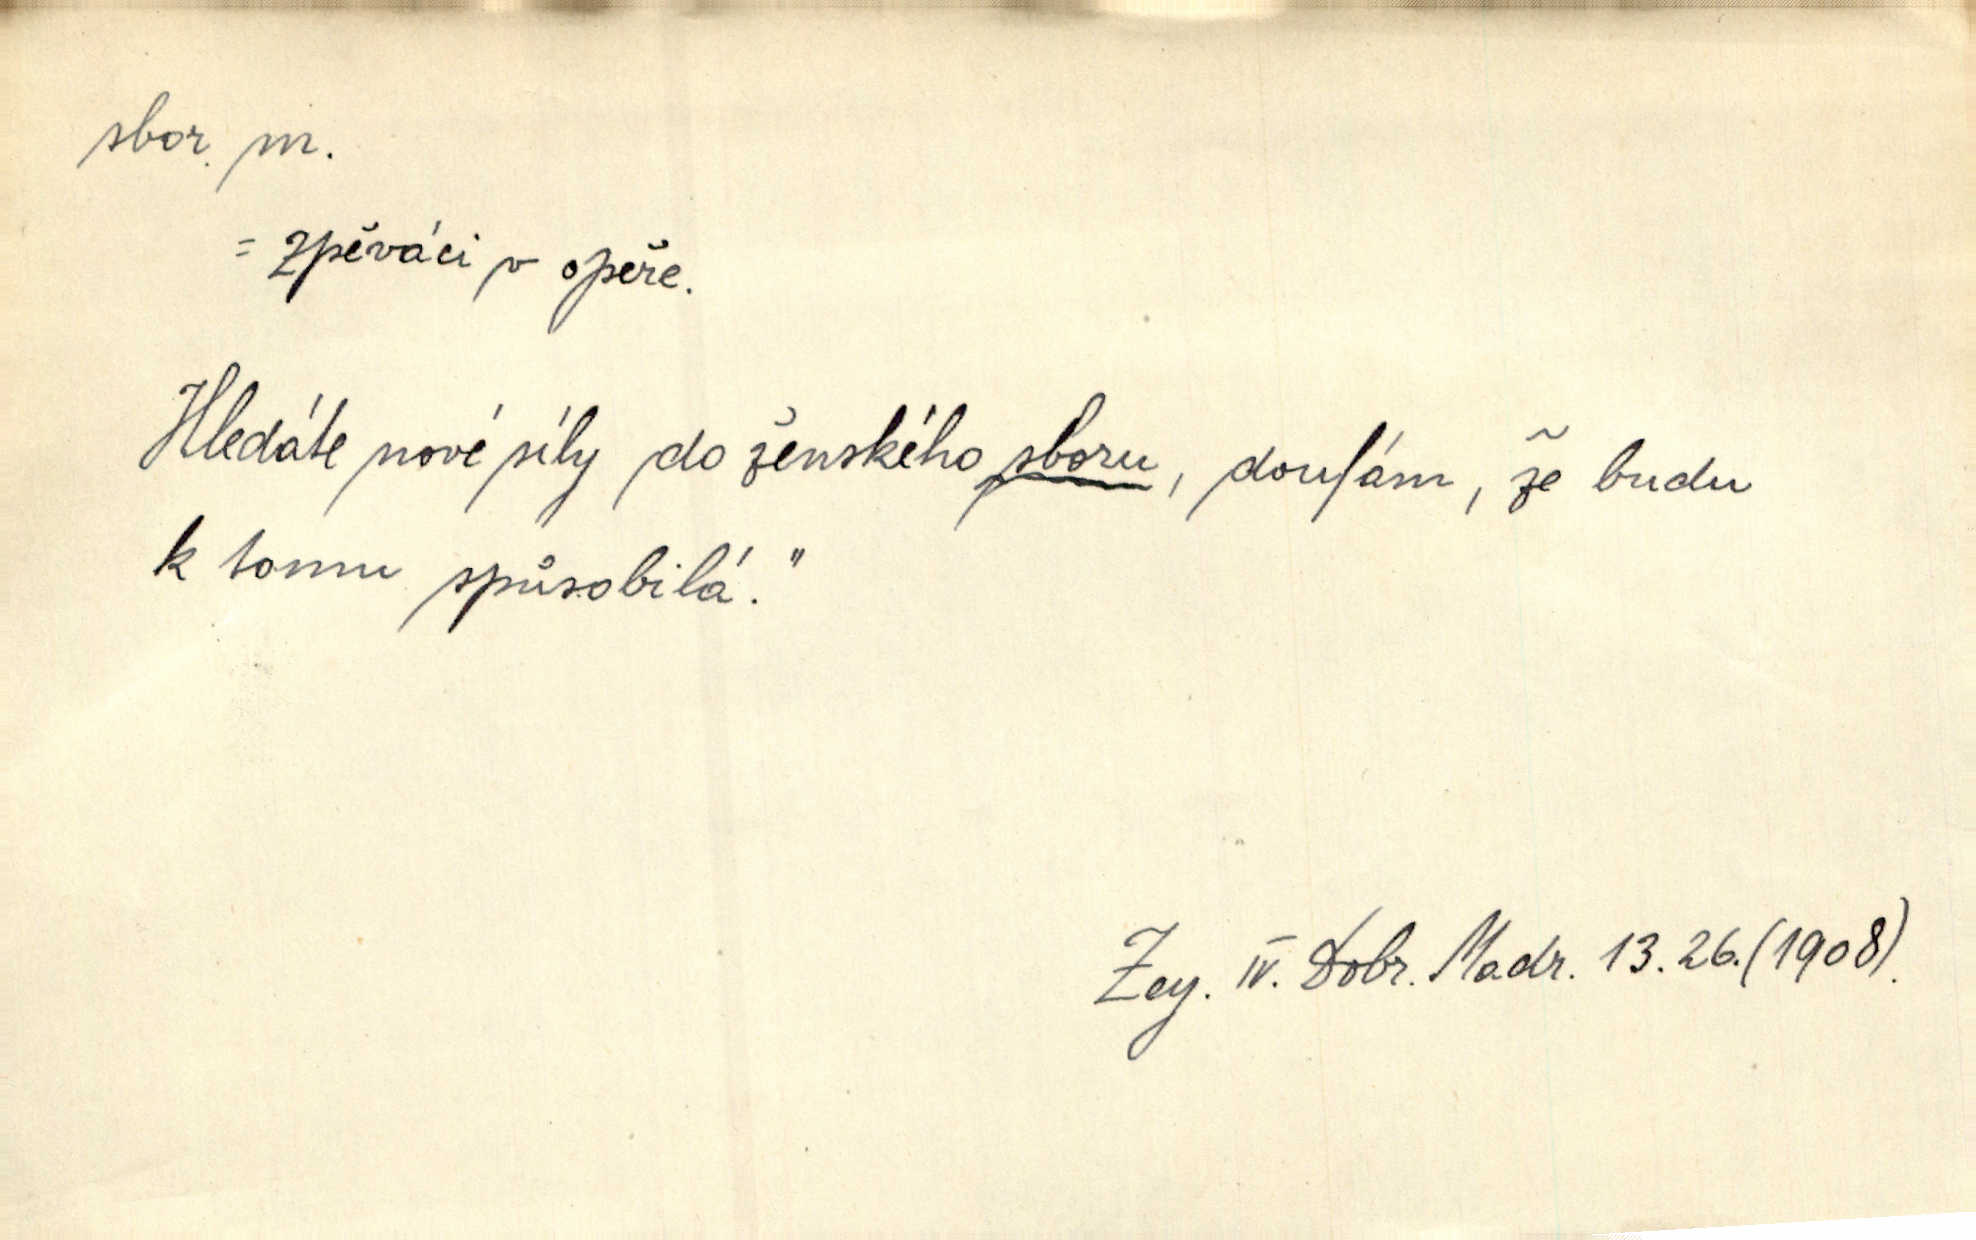 sbor. m.
= zpěváci v opeře.
Hledáte nové síly do ženského sboru, doufám, že budu
k tomu spůsobilá."
Zey. IV. Dobr. Madr. 13. 26. (1908).